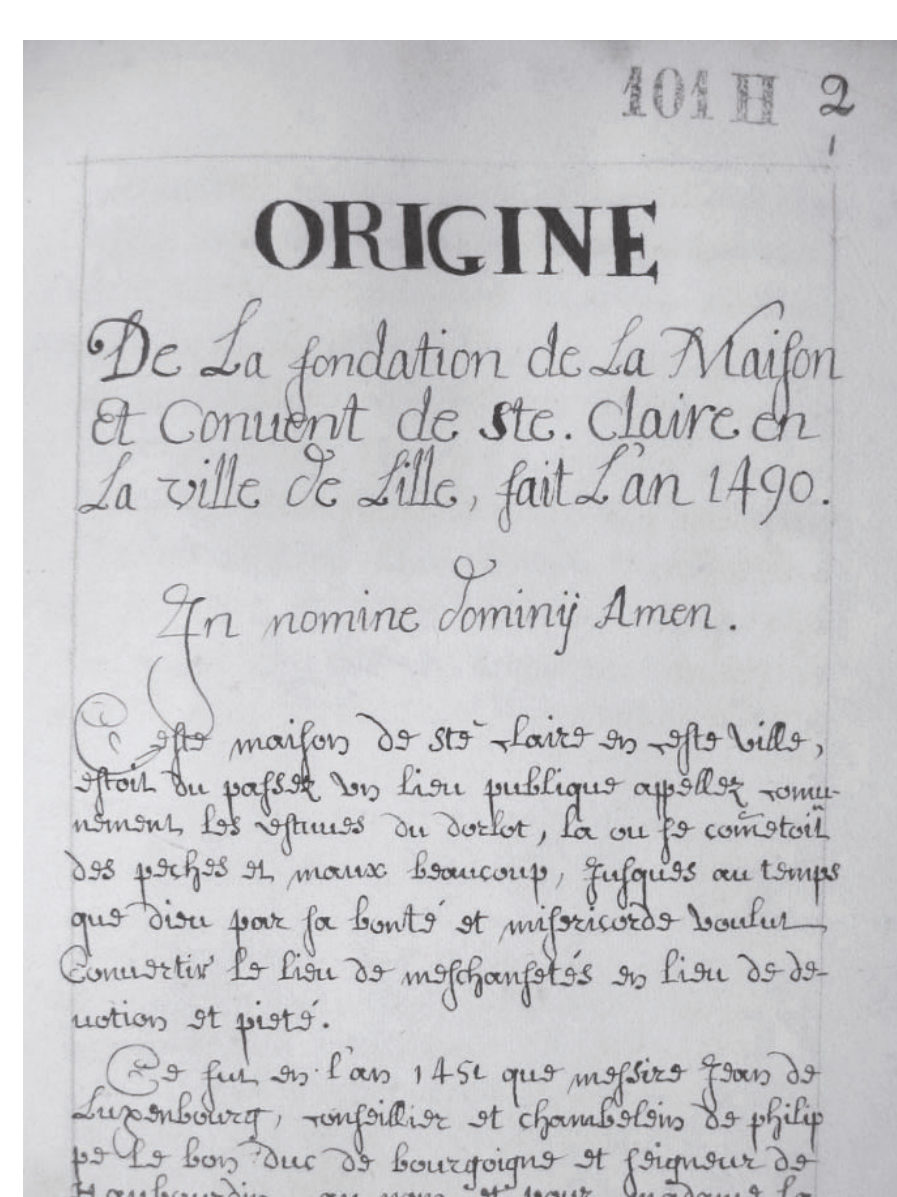 101 H 2
1
ORIGINE
De La fondation de La Maison
et Conuent de ste. Claire en
La ville de Lille, fait L'an 1490.
In nomine dominij Amen.
Ceste maison de ste Claire en ceste ville,
estoit du passez vn lieu publique appellez comu-
nement les estuues du dorlot, la ou se cometoit
des peches et maux beaucoup, jusques au temps
que dieu par sa bonté et misericorde voulut
Conuertir le lieu de meschansetés en lieu de de-
uotion et pieté.
Ce fut en l'an 1451 que messire Jean de
Luxenbourg, conseillier et chambelein de philip
pe Le bon duc de bourgoigne et seigneur de
Haubourdin, au nom et pour madame la